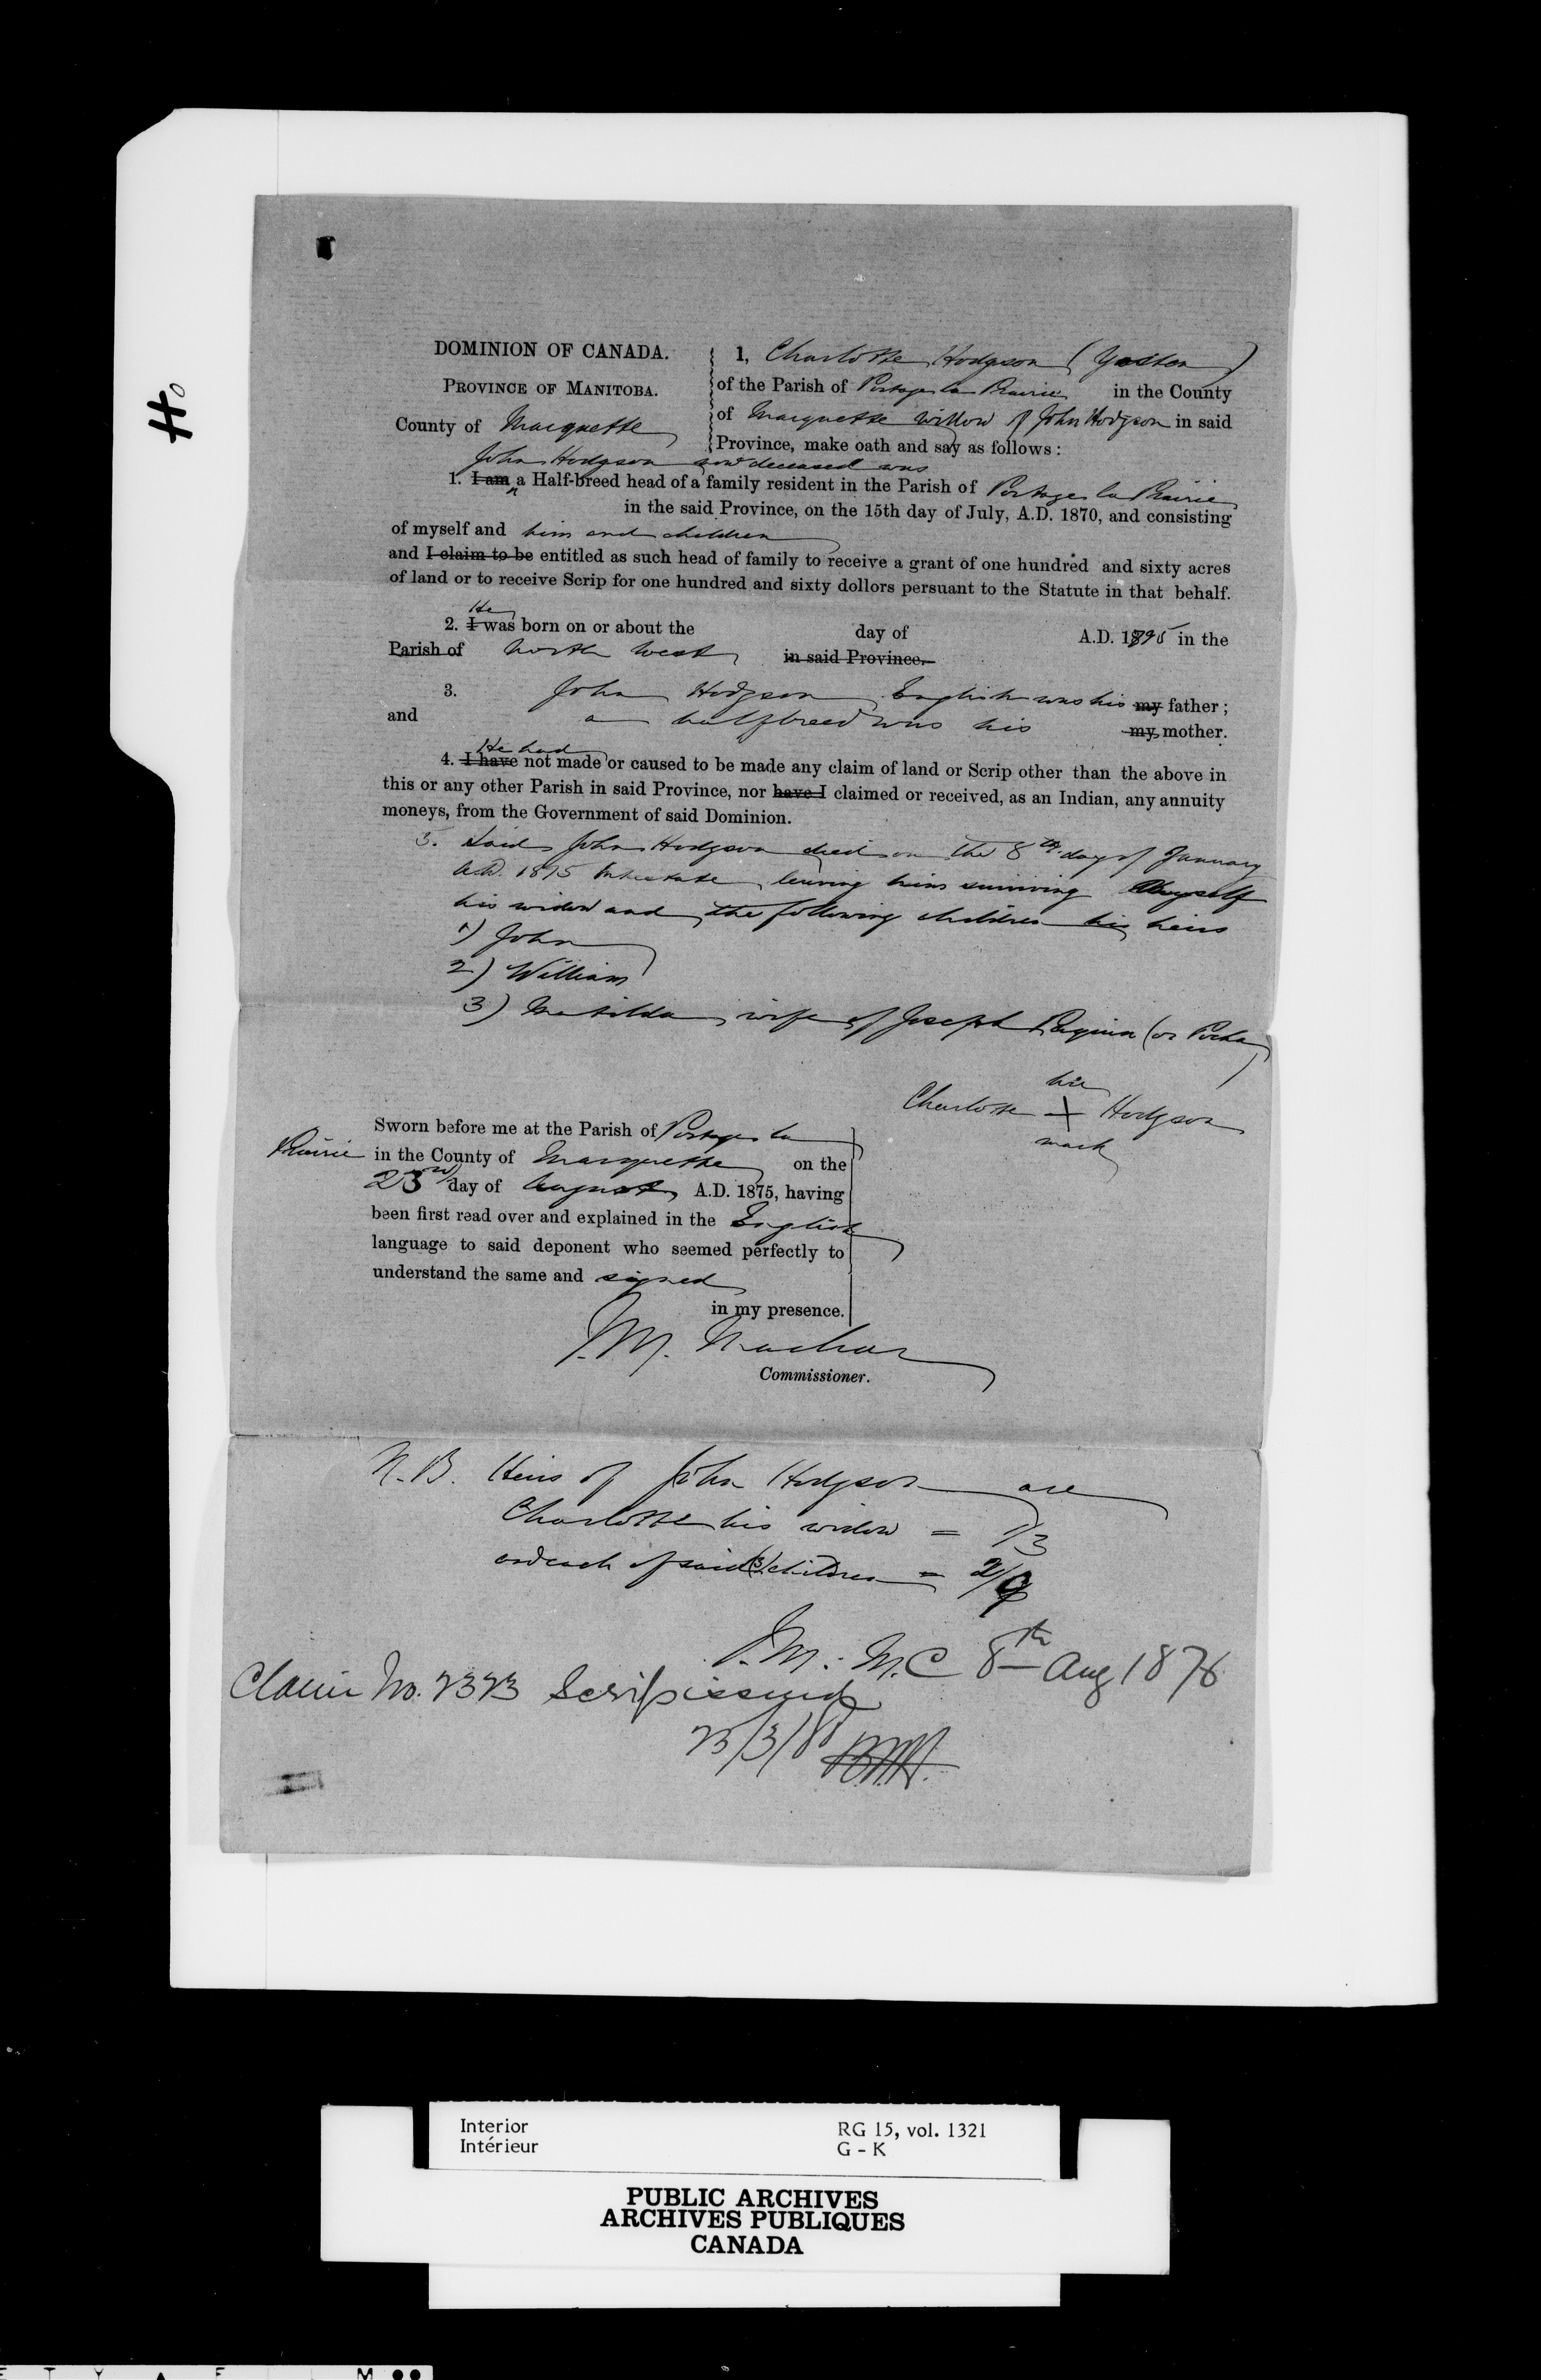 Ho
DOMINION OF CANADA.
PROVINCE OF MANITOBA.
County of Marquette
1, Charlotte Hodgson (Yeston)
of the Parish of Portage la Prairie in the County
of Marquette widow of John Hodgson in said
Province, make oath and say as follows:
John Hodgson now deceased was
1. I am a Half-breed head of a family resident in the Parish of Portage la Prairie
in the said Province, on the 15th day of July, A.D. 1870, and consisting
of myself and him and children
and I claim to be entitled as such head of family to receive a grant of one hundred and sixty acres
of land or to receive Scrip for one hundred and sixty dollors persuant to the Statute in that behalf.
He
2. I was born on or about the day of A.D. 1795 in the
Parish of North West in said Province.
3. John Hodgson English was his my father;
and a halfbreed was his my mother.
He had
4. I have not made or caused to be made any claim of land or Scrip other than the above in
this or any other Parish in said Province, nor have I claimed or received, as an Indian, any annuity
moneys, from the Government of said Dominion.
5. Said John Hodgson died on the 8th day of January
A.D. 1875 Intestate leaving him surviving Myself
his widow and the following children his heirs
1) John
2) William
3) Matilda wife of Joseph (or Pocha)
Charlotte X Hodgson
mark
Sworn before me at the Parish of Portage la
Prairie in the County of Marquette on the
23rd day of August A.D. 1875, having
been first read over and explained in the English
language to said deponent who seemed perfectly to
understand the same and signed
in my presence.
J.M. Machar
Commissioner.
N.B. Heirs of John Hodgson are
Charlotte his widow = 1/3
and each of said (3) children = 2/9
J.M. M.C 8th Aug 1876
Claim No. 2323 Scrip issued
23/3/
Interior
Intérieur
RG 15, vol. 1321
G - K
PUBLIC ARCHIVES
ARCHIVES PUBLIQUES
CANADA